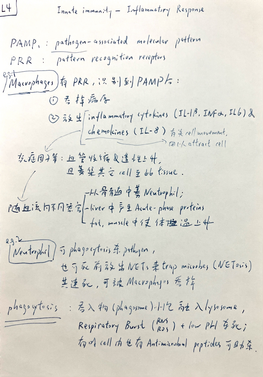 L4
Innate immunity - Inflammatory Response
PAMPs : pathogen-associated molecular pattern
PRR : pattern recognition receptors
Macrophages 有 PRR, 识别到 PAMP后:
① 吞掉病原
② 放出 inflammatory cytokines (IL-1β, TNFα, IL6) &
chemokines (IL-8)
attract cell
发炎用以: 血管收缩及通透性上升,
且 其它 cell 至 tissue.
骨髓中 Neutrophil;
liver 中产生 Acute-phase proteins
fat, muscle 中使体温上升
Neutrophil 可 phagocytosis 杀 pathogen,
也可死前放出 NETs 来 trap microbes (NETosis)
其, 可被 Macrophages 吞掉
phagocytosis : 吞入物 (phagosome) 融入 lysosome,
Respiratory Burst (ROS RNS) + low PH 杀死;
有的 cell 内也有 Antimicrobial peptides 可